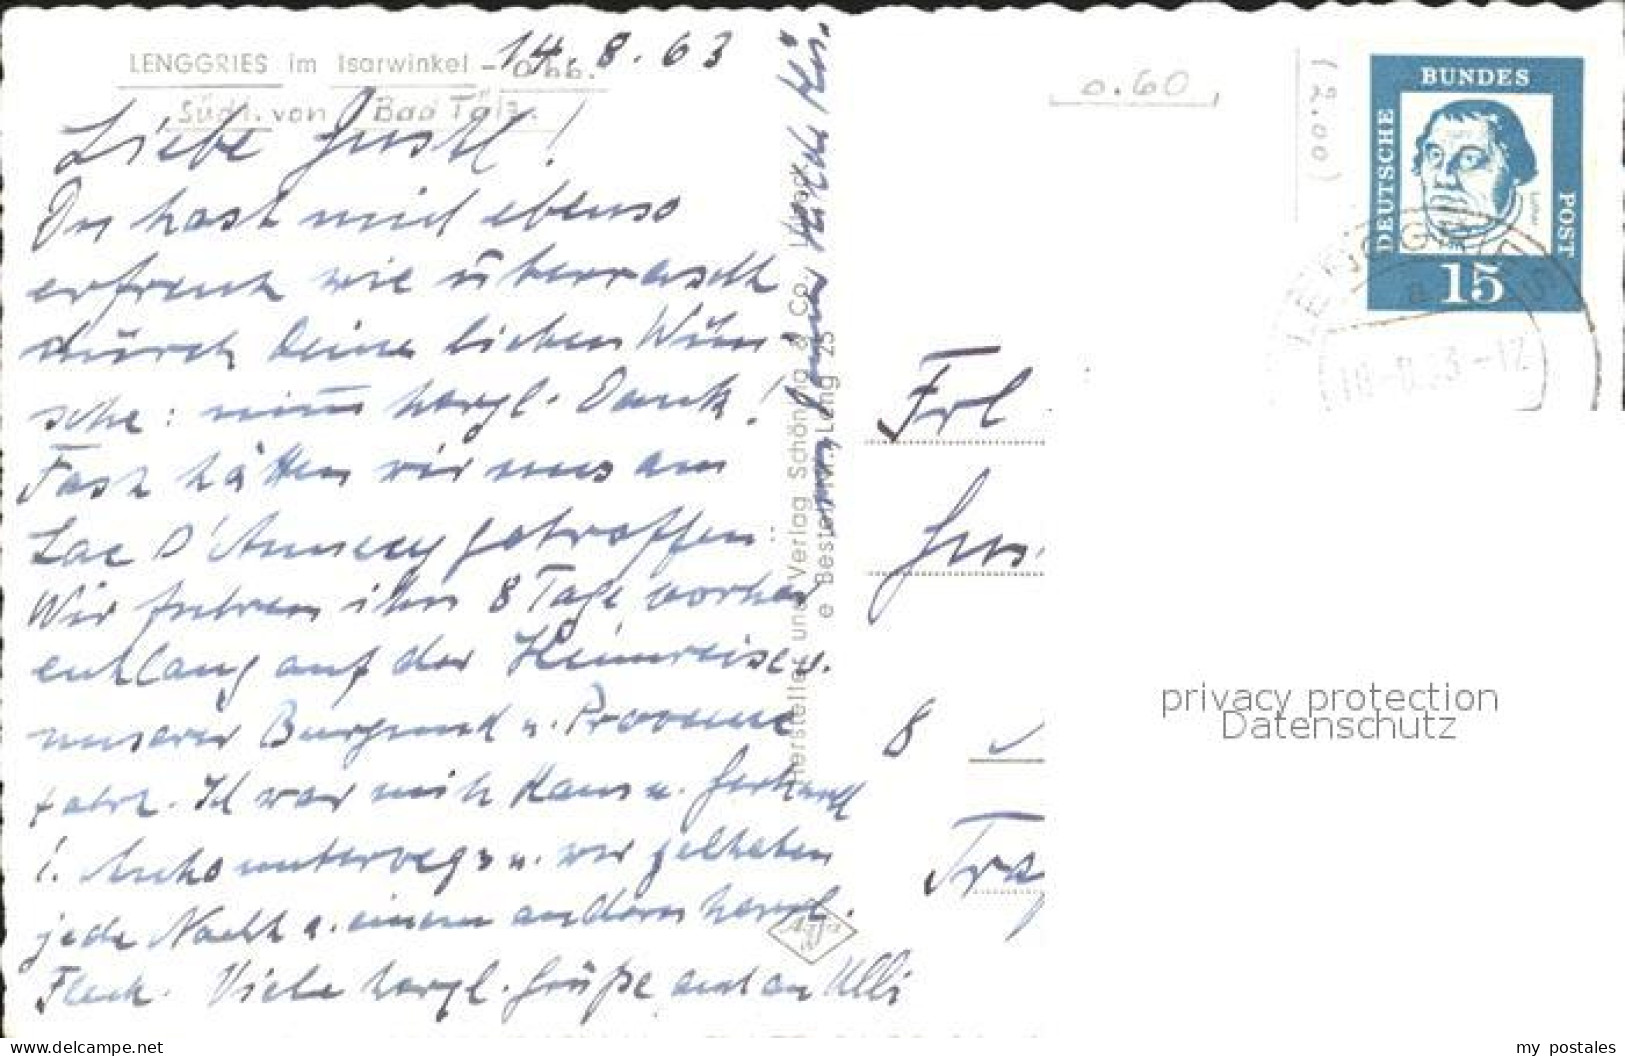 LENGGRIES im Isarwinkel - Obb.
Südl. von Bad Tölz.
14. 8. 63
Liebe Gustl!
Du hast mich ebenso
erfreut wie überrascht
durch Deine lieben Wün-
sche: nimm herzl. Dank!
Fast hätten wir uns am
Lac D'Annecy getroffen:
Wir fuhren ihn 8 Tage vorher
entlang auf der Heimreise v.
unserer Burgund u. Provence
fahrt. Ich war mit Hans u. Gerhard
i. Auto unterwegs u. wir zelteten
jede Nacht a. einem andern herrl.
Fleck. Viele herzl. Grüße auch an Ulli
Hersteller und Verlag Schöning & Co., Lübeck
Bestell-Nr. Leng 25
Agfa
0.60
(2.00)
DEUTSCHE
BUNDES
POST
Luther
15
LENGGRIES
a
-8.63-12
Frl
Gus
8
Tra
privacy protection
Datenschutz
delcampe.net
my_postales